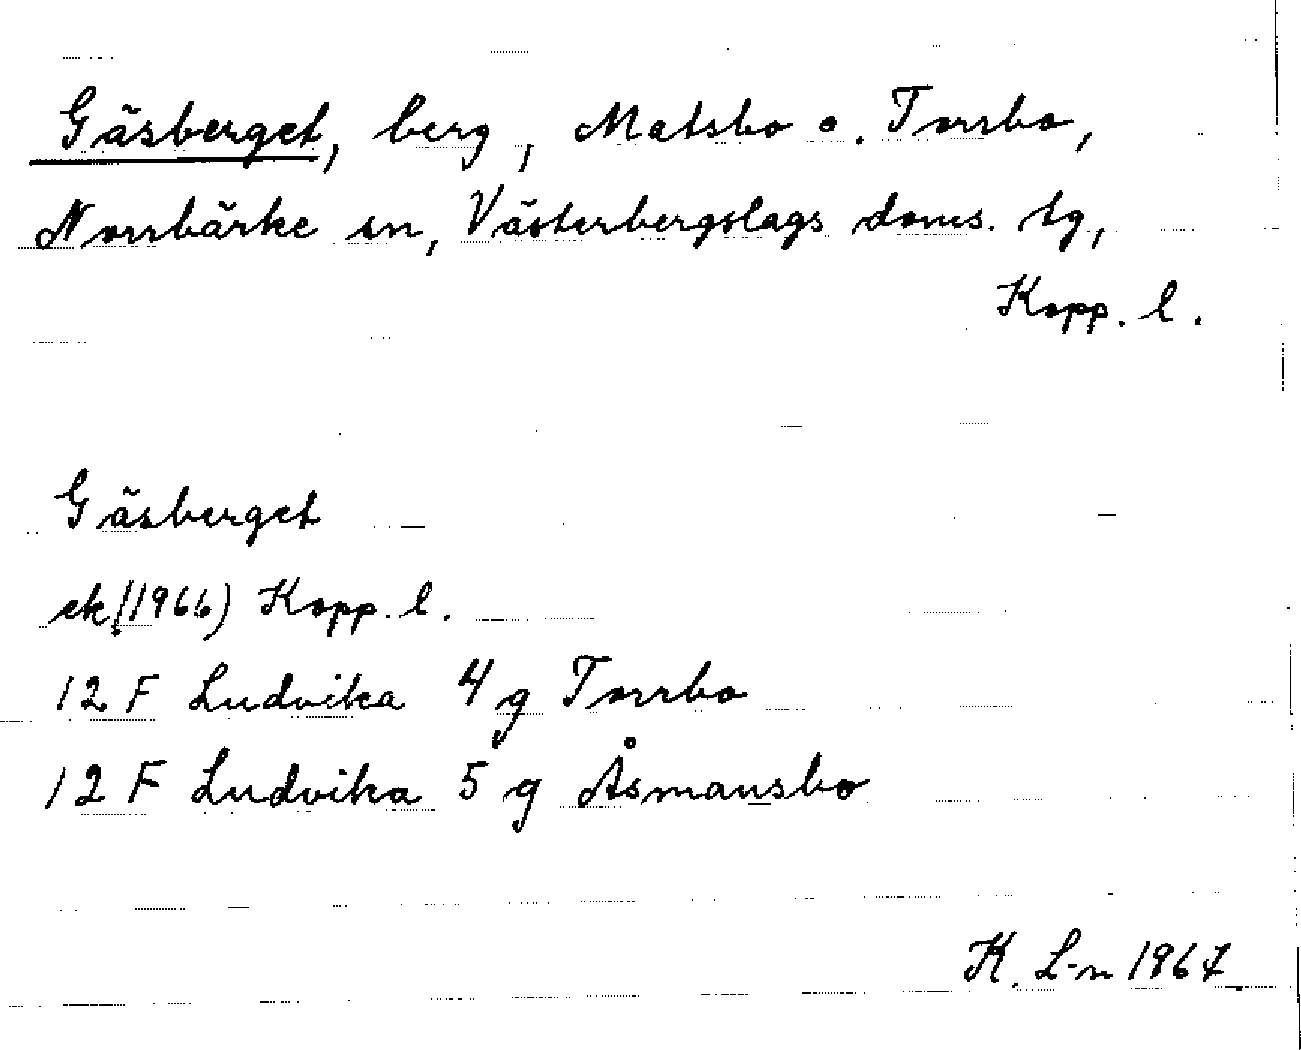 Gäsberget, berg, Matsbo o. Torrbo,
Norrbärke sn, Västerbergslags doms. tg,
Kopp. l.
Gäsberget
ek (1966) Kopp. l.
12 F Ludvika 4 g Torrbo
12 F Ludvika 5 g Åsmansbo
K. L-n 1967